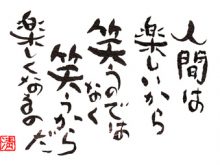 人間は
楽しいから
笑うのでは
なく
笑うから
楽しくなるのだ